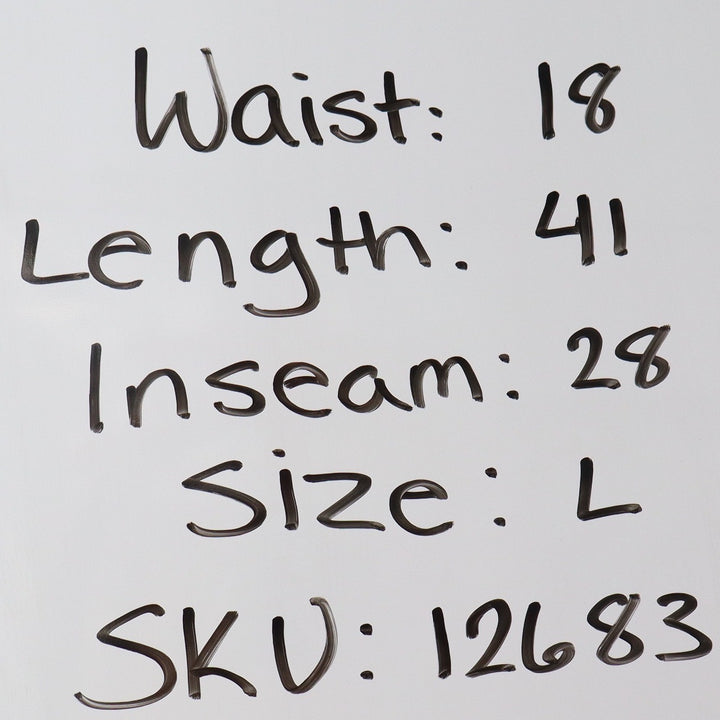 Waist: 18
Length: 41
Inseam: 28
Size: L
SKU: 12683